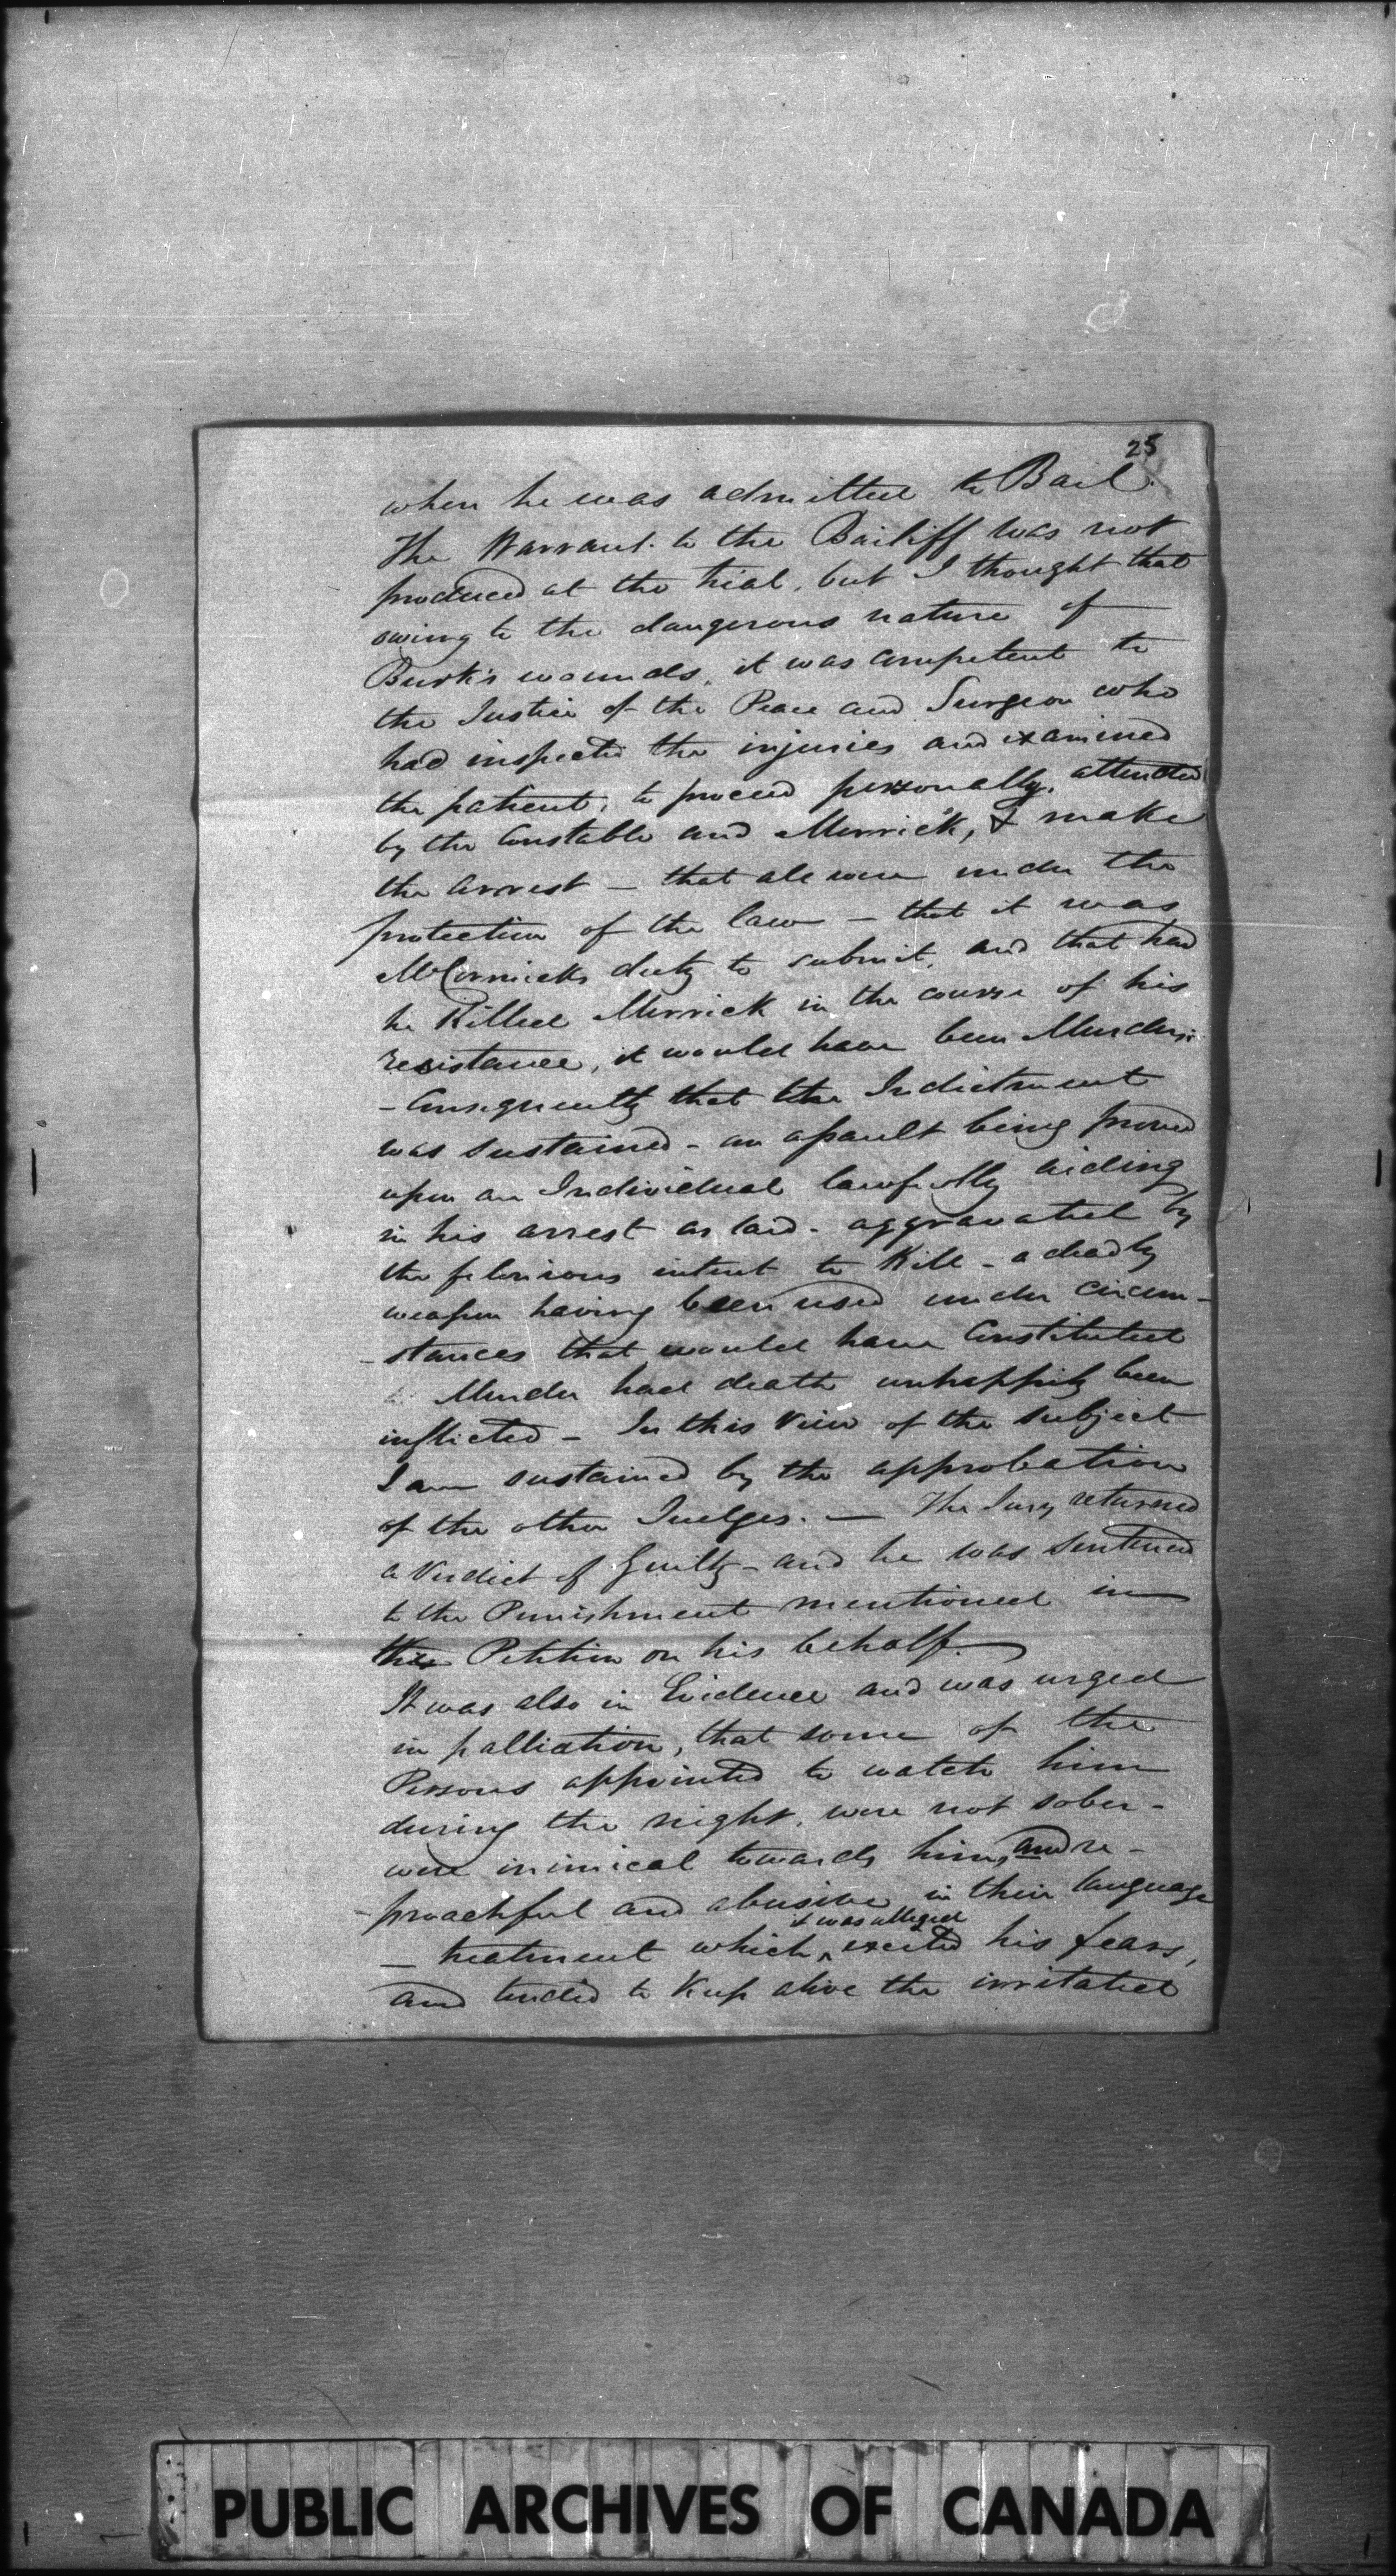 25
when he was admitted to Bail.
The Warrant to the Bailiff was not
produced at the trial, but I thought that
owing to the dangerous nature of
Burk's wounds, it was competent to
the Justice of the Peace and Surgeon who
had inspected the injuries and examined
the patient, to proceed personally, attended
by the Constable and Merrick, & make
the arrest – that all were under the
protection of the law – that it was
McCormicks duty to submit, and that had
he Killed Merrick in the course of his
resistance, it would have been Murder.
– Consequently that the Indictment
was sustained – an assault being proved
upon an Individual lawfully aiding
in his arrest as laid – aggravated by
the felonious intent to Kill – a deadly
weapon having been used under circum-
-stances that would have Constituted
Murder had death unhappily been
inflicted – In this view of the subject
I am sustained by the approbation
of the other Judges. — The Jury returned
a Verdict of Guilty – and he was sentenced
to the Punishment mentioned in
the Petition on his behalf.
It was also in Evidence and was urged
in palliation, that some of the
Persons appointed to watch him
during the night, were not sober –
were inimical towards him, and re-
-proachful and abusive in their language
it was alleged
– treatment which excited his fears,
and tended to Keep alive the irritated
PUBLIC ARCHIVES OF CANADA